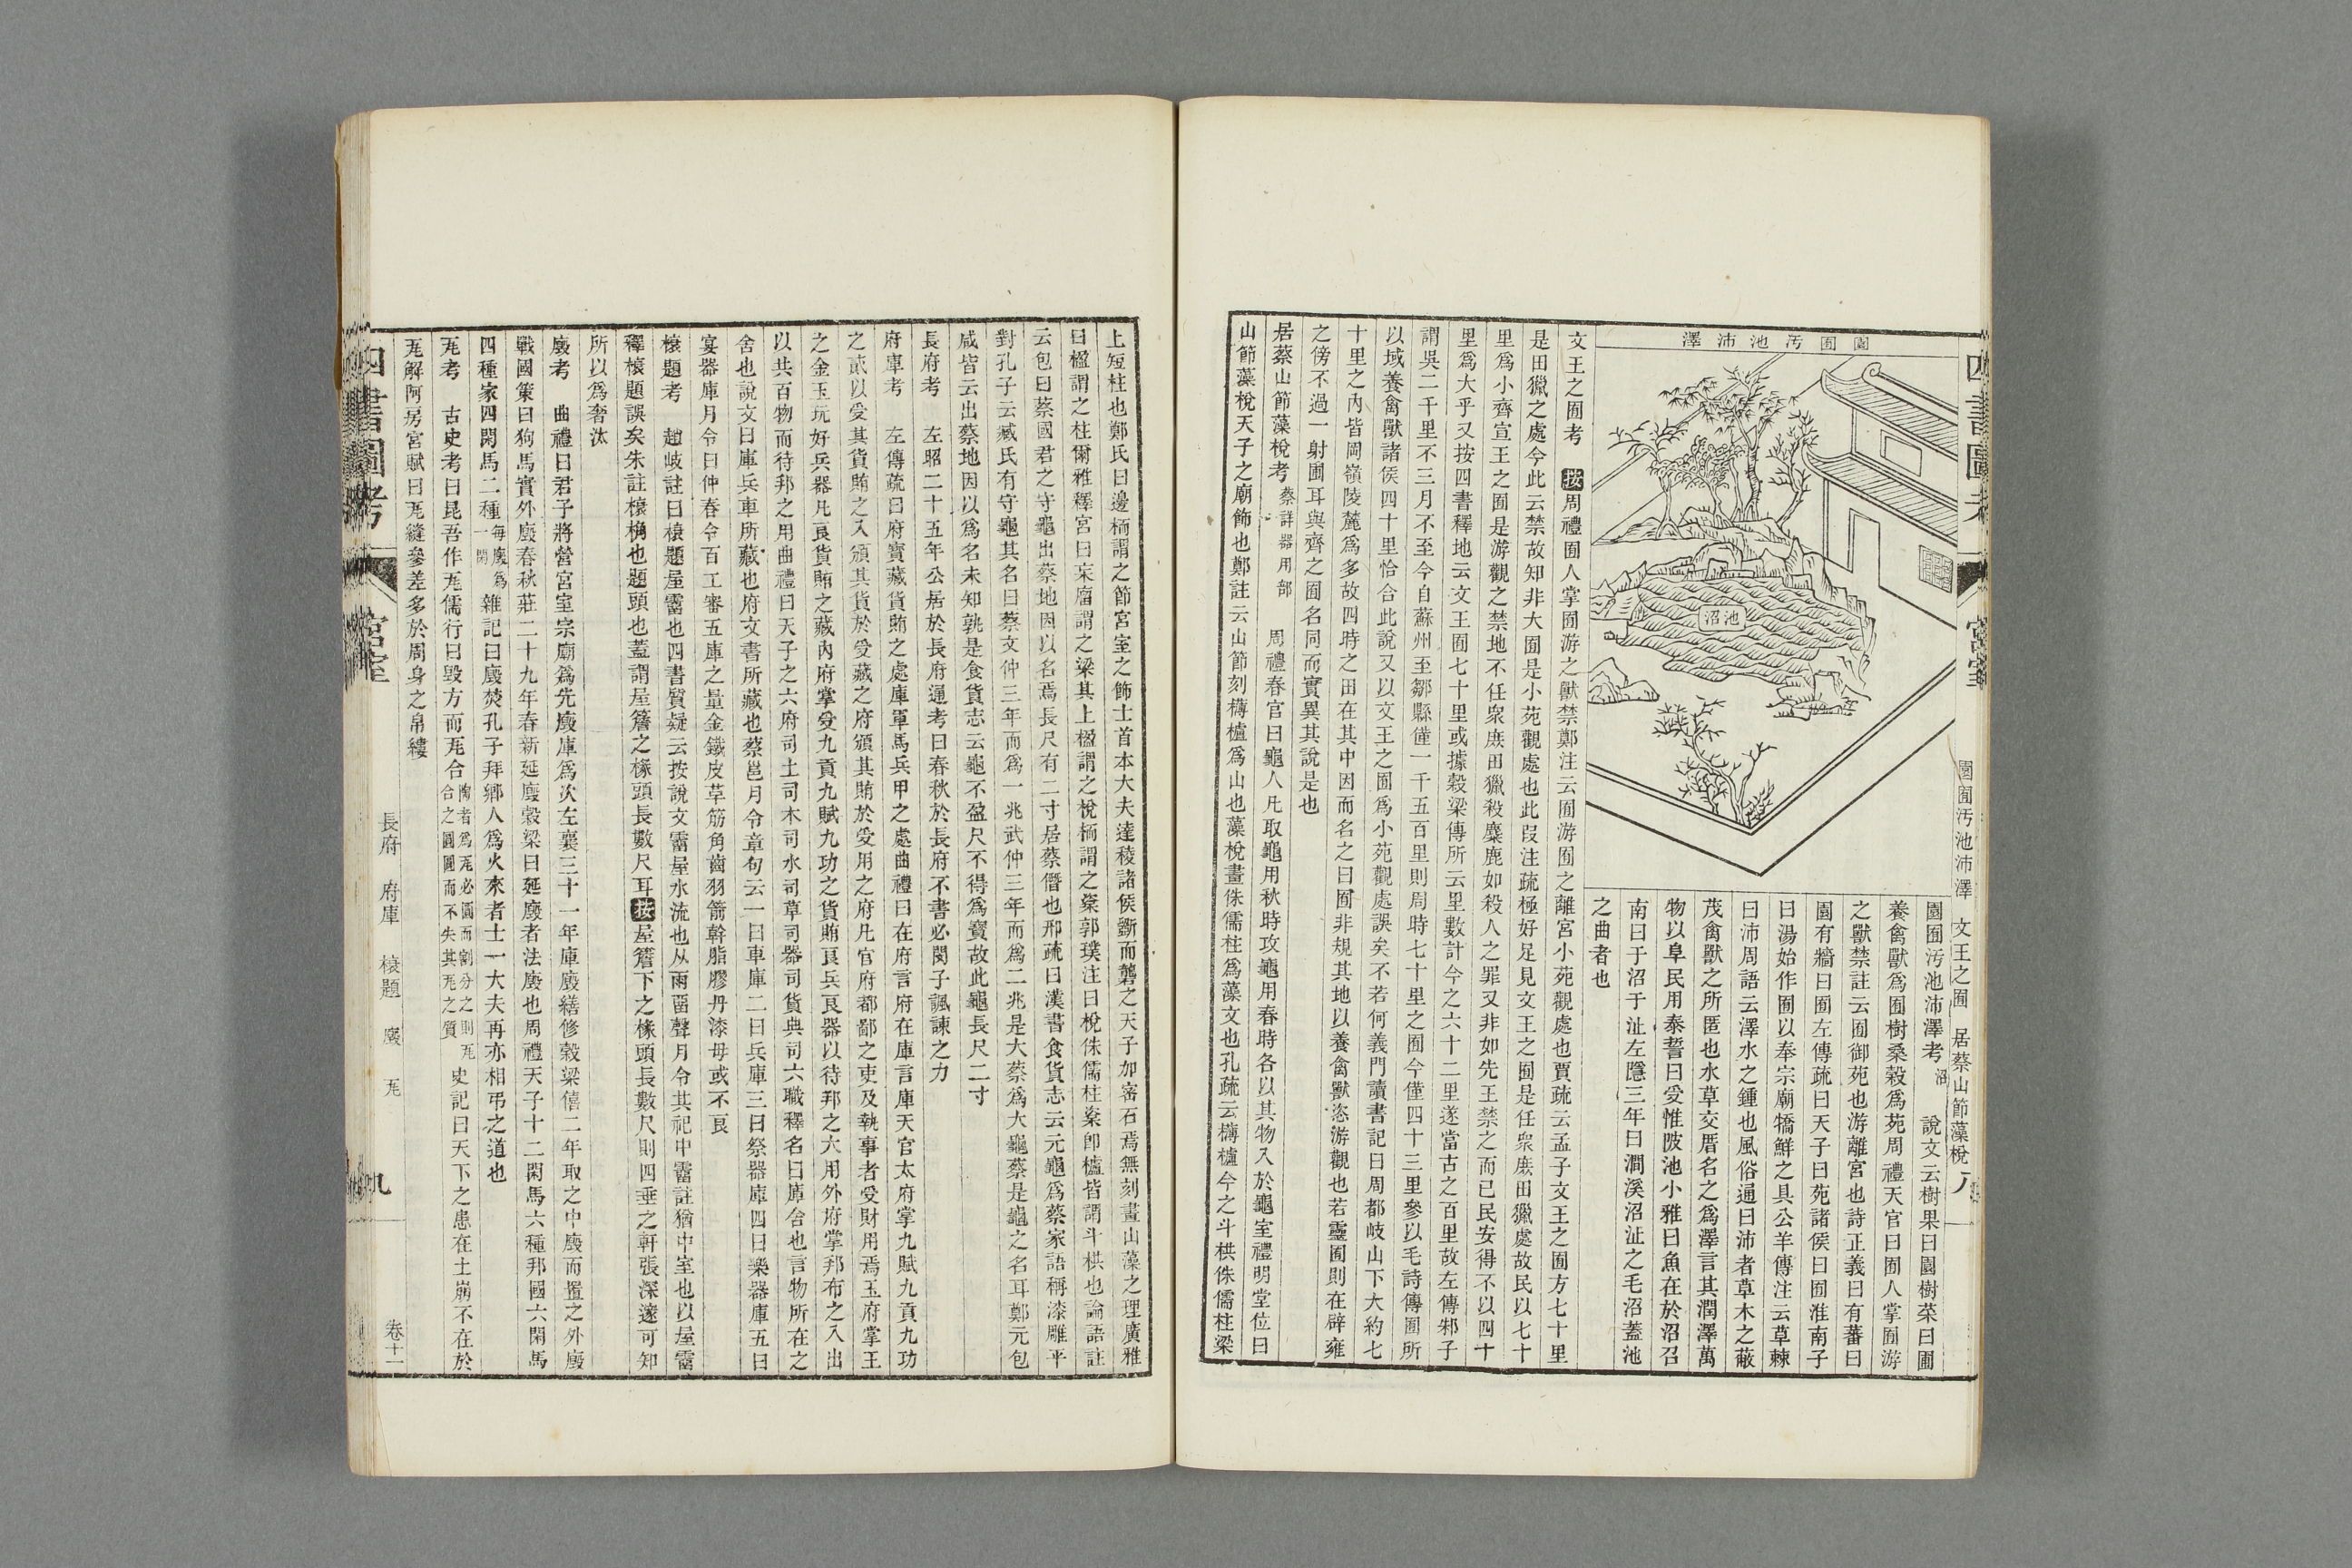 四書圖考
宮室
園囿汚池沛澤 文王之囿 居蔡山節藻梲
八
園囿汚池沛澤
池沼
園囿汚池沛澤考 沼 說文云樹果曰園樹菜曰圃
養禽獸爲囿樹桑穀爲苑周禮天官曰囿人掌囿游
之獸禁註云囿御苑也游離宮也詩正義曰有蕃曰
園有牆曰囿左傳疏曰天子曰苑諸侯曰囿淮南子
曰湯始作囿以奉宗廟犞鮮之具公羊傳注云草棘
曰沛周語云澤水之鍾也風俗通曰沛者草木之蔽
茂禽獸之所匿也水草交厝名之爲澤言其潤澤萬
物以阜民用泰誓曰受惟陂池小雅曰魚在於沼召
南曰于沼于沚左隱三年曰澗溪沼沚之毛沼蓋池
之曲者也
文王之囿考 按周禮囿人掌囿游之獸禁鄭注云囿游囿之離宮小苑觀處也賈疏云孟子文王之囿方七十里
是田獵之處今此云禁故知非大囿是小苑觀處也此段注疏極好足見文王之囿是任衆庶田獵處故民以七十
里爲小齊宣王之囿是游觀之禁地不任衆庶田獵殺麋鹿如殺人之罪又非如先王禁之而已民安得不以四十
里爲大乎又按四書釋地云文王囿七十里或據穀梁傳所云里數計今之六十二里遂當古之百里故左傳邾子
謂吳二千里不三月不至今自蘇州至鄒縣僅一千五百里則周時七十里之囿今僅四十三里參以毛詩傳囿所
以域養禽獸諸侯四十里恰合此說又以文王之囿爲小苑觀處誤矣不若何義門讀書記曰周都岐山下大約七
十里之內皆岡嶺陵麓爲多故四時之田在其中因而名之曰囿非規其地以養禽獸恣游觀也若靈囿則在辟雍
之傍不過一射圃耳與齊之囿名同而實異其說是也
居蔡山節藻梲考 蔡詳器用部 周禮春官曰龜人凡取龜用秋時攻龜用春時各以其物入於龜室禮明堂位曰
山節藻梲天子之廟飾也鄭註云山節刻欂櫨爲山也藻梲畫侏儒柱爲藻文也孔疏云欂櫨今之斗栱侏儒柱梁
上短柱也鄭氏曰邊栭謂之節宮室之飾士首本大夫達稜諸侯斵而礱之天子加密石焉無刻畫山藻之理廣雅
曰楹謂之柱爾雅釋宮曰杗廇謂之梁其上楹謂之梲栭謂之楶郭璞注曰梲侏儒柱楶卽櫨皆謂斗栱也論語註
云包曰蔡國君之守龜出蔡地因以名焉長尺有二寸居蔡僭也邢疏曰漢書食貨志云元龜爲蔡家語稱漆雕平
對孔子云臧氏有守龜其名曰蔡文仲三年而爲一兆武仲三年而爲二兆是大蔡爲大龜蔡是龜之名耳鄭元包
咸皆云出蔡地因以爲名未知孰是食貨志云龜不盈尺不得爲寶故此龜長尺二寸
長府考 左昭二十五年公居於長府運考曰春秋於長府不書必閔子諷諫之力
府庫考 左傳疏曰府寶藏貨賄之處庫軍馬兵甲之處曲禮曰在府言府在庫言庫天官太府掌九賦九貢九功
之貳以受其貨賄之入頒其貨於受藏之府頒其賄於受用之府凡官府都鄙之吏及執事者受財用焉玉府掌王
之金玉玩好兵器凡良貨賄之藏內府掌受九貢九賦九功之貨賄良兵良器以待邦之大用外府掌邦布之入出
以共百物而待邦之用曲禮曰天子之六府司土司木司水司草司器司貨典司六職釋名曰庫舍也言物所在之
舍也說文曰庫兵車所藏也府文書所藏也蔡邕月令章句云一曰車庫二曰兵庫三曰祭器庫四曰樂器庫五曰
宴器庫月令曰仲春令百工審五庫之量金鐵皮革筋角齒羽箭幹脂膠丹漆毋或不良
榱題考 趙岐註曰榱題屋霤也四書質疑云按說文霤屋水流也从雨畱聲月令其祀中霤註猶中室也以屋霤
釋榱題誤矣朱註榱桷也題頭也蓋謂屋簷之椽頭長數尺耳按屋簷下之椽頭長數尺則四垂之軒張深邃可知
所以爲奢汰
廏考 曲禮曰君子將營宮室宗廟爲先廏庫爲次左襄三十一年庫廏繕修穀梁僖二年取之中廏而置之外廏
戰國策曰狗馬實外廏春秋莊二十九年春新延廏穀梁曰延廏者法廏也周禮天子十二閑馬六種邦國六閑馬
四種家四閑馬二種 每廏爲一閑 雜記曰廏焚孔子拜鄉人爲火來者士一大夫再亦相弔之道也
瓦考 古史考曰昆吾作瓦儒行曰毀方而瓦合 陶者爲瓦必圓而割分之則瓦合之圓圓而不失其瓦之質 史記曰天下之患在土崩不在於
瓦解阿房宮賦曰瓦縫參差多於周身之帛縷
四書圖考
宮室
長府 府庫 榱題 廏 瓦
九
卷十一